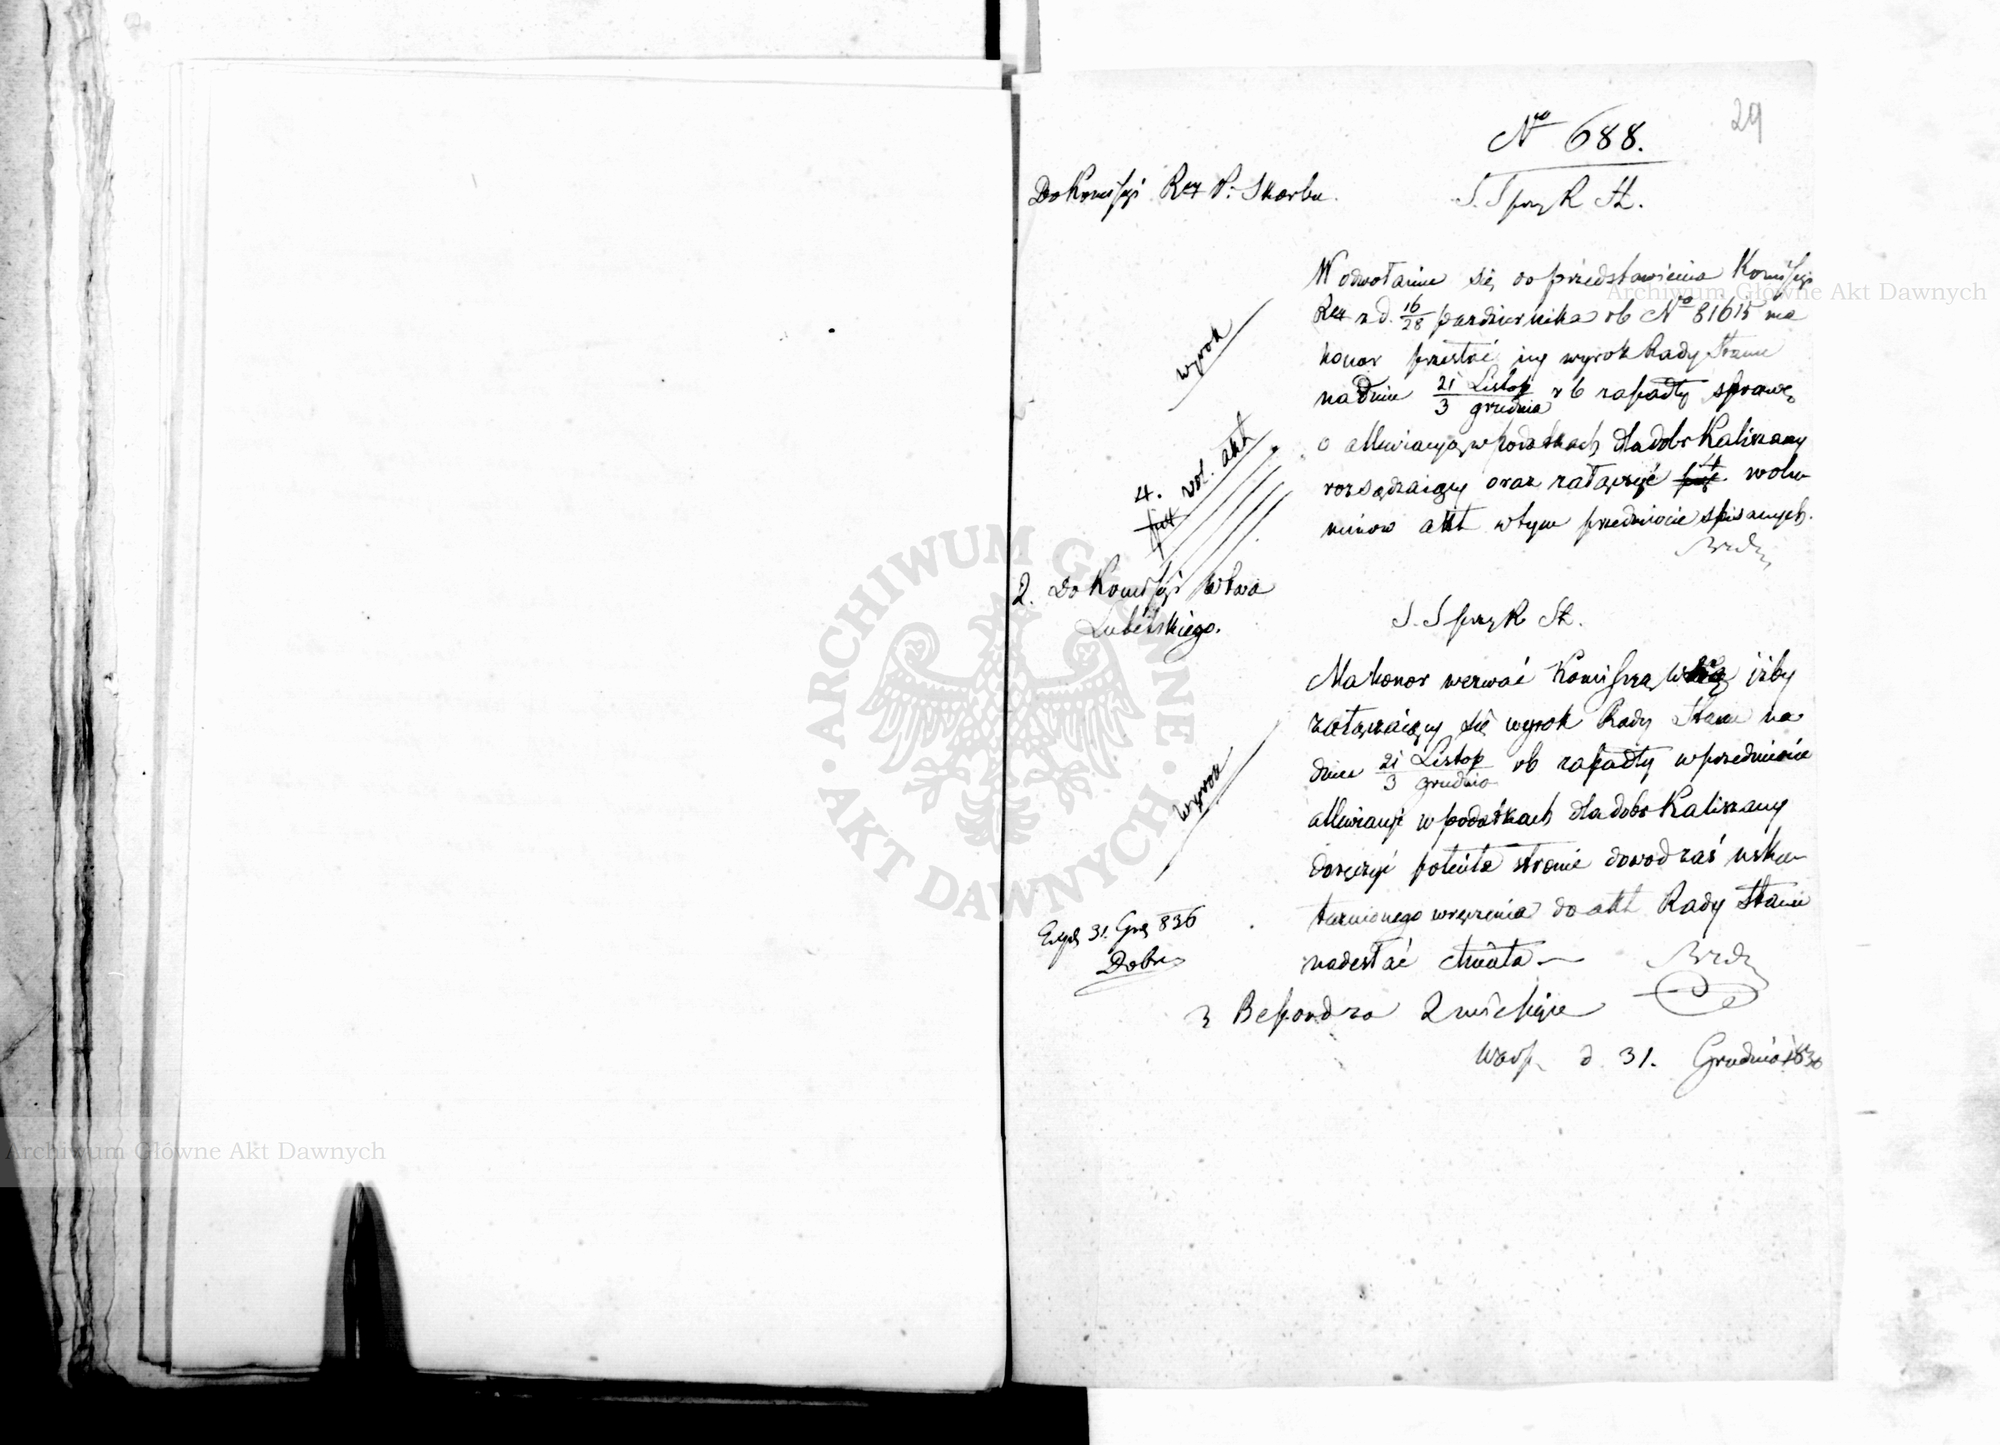 29
Nro 688.
Do Komissyi Rzą P. i Skarbu.
S. S. przy R. St.
W odwołaniu się do przedstawienia Komissyi
Rzą z d. 16/28 pazdziernika rb No 81615 ma
honor przesłać jey wyrok Rady Stanu
na dniu 21 Listop / 3 grudnia rb zapadły sprawę
o allewiacyą w podatkach dla dobr Kaliszany
rozsądzaiący oraz załączyć wolu-
minow akt w tym przedmiocie spisanych.
wyrok
4. vol. akt
2. Do Komissyi Wtwa
Lubelskiego.
S. S. przy R. St.
Ma honor wezwać Komissyą iżby
załączaiący się wyrok Rady Stanu na
dniu 21 Listop / 3 grudnia rb zapadły w przedmiocie
allewiacyi w podatkach dla dobr Kaliszany
doręczyć potentu stronie dowod zaś usku-
tecznionego wręczenia do akt Rady Stanu
nadesłać chciała
wyrok
Exp. 31. Gru 836
3
Warsz. d. 31. Grudnia 1836
ARCHIWUM GŁÓWNE AKT DAWNYCH
Archiwum Główne Akt Dawnych
Archiwum Główne Akt Dawnych